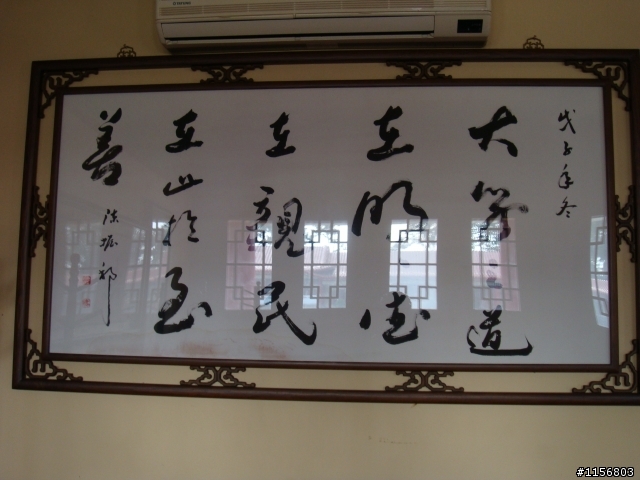 戊子年冬
大學之道
在明明德
在親民
在止於至
善
陳振邦
#1156803